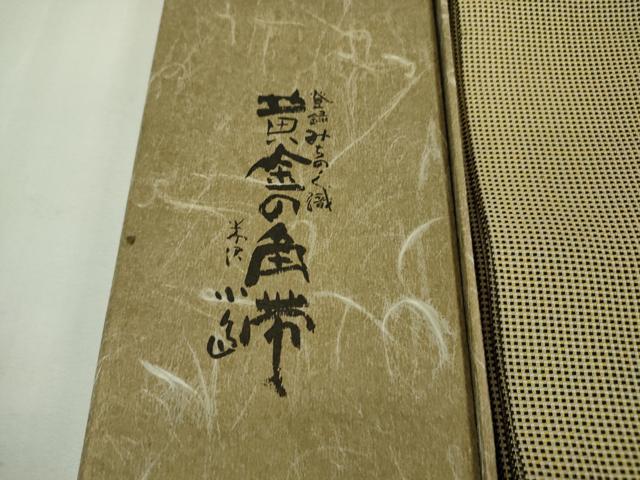 登録みちのく織
黄金の角帯
米沢